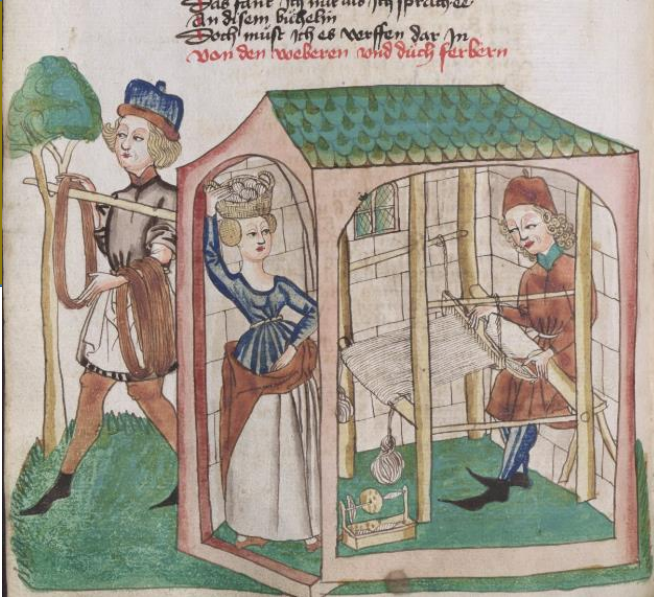 Das sant ich nit als ich sprachee
An disem büchelin
Doch müst ich es werffen dar jn
von den weberen vnd düch ferbern